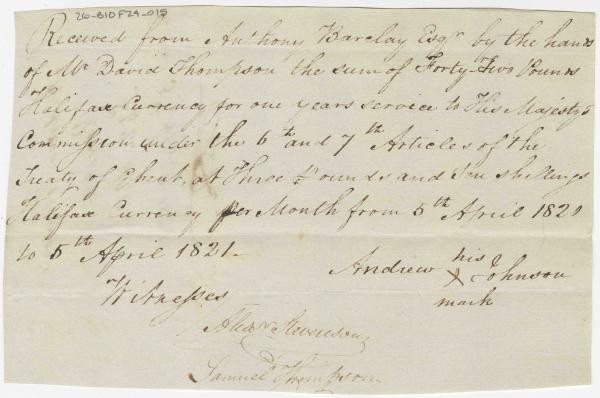 26-B10F24-015
Received from Anthony Barclay Esqr. by the hands
of Mr David Thompson the sum of Forty-Two Pounds
Halifax Currency for one years service to His Majestys
Commission under the 6th and 7th Articles of the
Treaty of Ghent, at Three Pounds and Ten shillings
Halifax Currency per Month from 5th April 1820
to 5th April 1821.
Andrew his X Johnson
mark
Witnesses
Alexr Stevenson
Samuel Thompson